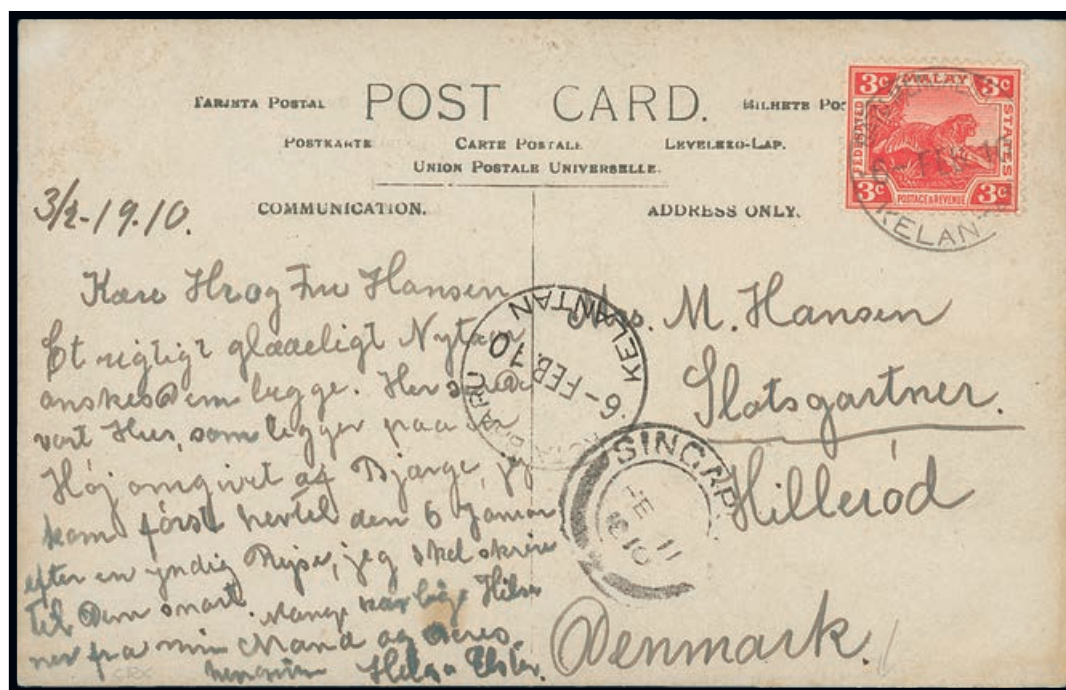 TARJETA POSTAL POST CARD. BILHETE POS
POSTKARTE CARTE POSTALE LEVELEZO-LAP.
UNION POSTALE UNIVERSELLE.
COMMUNICATION. ADDRESS ONLY.
3/2-19.10.
Kære Hr og Fru Hansen
Et rigtigt glædeligt Nytaar
ønskes Dem begge. Her
vort Hus, som ligger paa en
Høj omgivet af Bjærge, jeg
kom först hertil den 6 Januar
efter en yndig Rejse, jeg skal skrive
til Dem snart. Mange kærlige Hilse
ner fra min Mand og Deres
Helga
Mrs. M. Hansen
Slotsgartner.
Hilleröd
Denmark.
3c MALAY 3c
FEDERATED STATES
3c POSTAGE & REVENUE 3c
FEB 10
KELANT
KOTA BHARU
6-FEB.10
KELANTAN
SINGAP
FE
11
1910
CRX